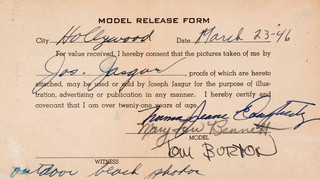 MODEL RELEASE FORM
City Hollywood Date March 23-46
For value received, I hereby consent that the pictures taken of me by
Jos. Jasgur, proofs of which are hereto
attached, may be used or sold by Joseph Jasgur for the purpose of illus-
tration, advertising or publication in any manner. I hereby certify and
covenant that I am over twenty-one years of age.
Norma Jeane Dougherty
Mary Lou Bennett
MODEL
TOM BURTON
WITNESS
outdoor beach photos